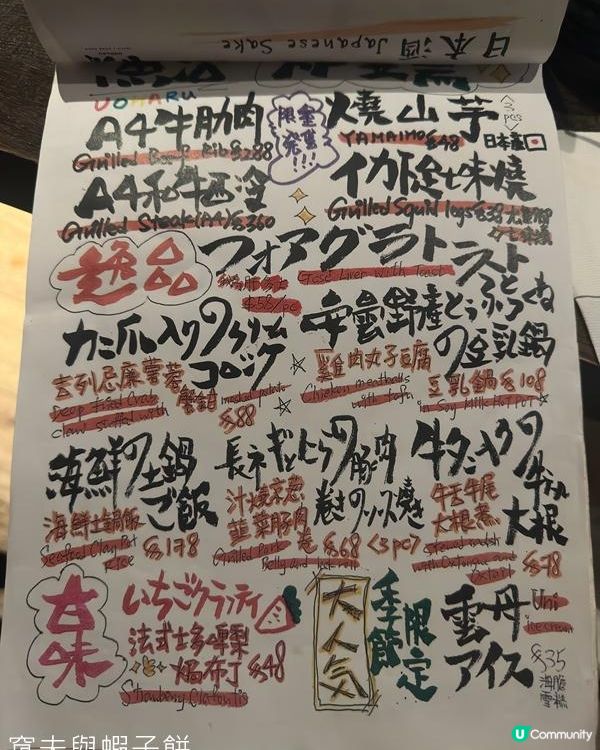 日本酒 Japanese Sake
UOHARU
A4牛肋肉
Grilled Beef Rib $288
限量
発売
!!!
燒山芋
<3pcs>
YAMAIMO $48
日本産
A4和牛西冷
Grilled Steak (A4) $360
Grilled Squid legs
逸品
フォアグラトースト
Goose Liver with Toast
$58/pc
カニ爪入りのクリーム
コロッケ
吉列忌廉薯蓉
蟹鉗
Deep Fried Crab
claw stuffed with
mashed potato
$88
安曇野産とうふつくね
の豆乳鍋
雞肉丸子豆腐
豆乳鍋 $108
Chicken meatballs
with tofu
in Soy Milk Hot Pot
海鮮の土鍋
ご飯
海鮮土鍋飯
Seafood Clay Pot
Rice $178
長ネギとにらの豚肉
巻きのソース焼き
汁燒京葱
韮菜豚肉
巻 $68 <3pc>
Grilled Pork
Belly and leek roll
牛タン入りの
大根
牛舌牛尾
大根煮
Stewed radish
with Ox tongue and
Oxtail $78
甘味
いちごクラフティ
法式士多啤梨
焗布丁 $48
Strawberry Clafoutis
大人気
季節
限定
雲丹
アイス
Uni
ice cream
$35
海膽
雪糕
窩夫與蝦子餅
U Community